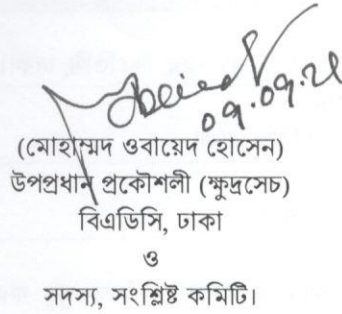 ০৭.০৭.২১
(মোহাম্মদ ওবায়েদ হোসেন)
উপপ্রধান প্রকৌশলী (ক্ষুদ্রসেচ)
বিএডিসি, ঢাকা
ও
সদস্য, সংশ্লিষ্ট কমিটি।